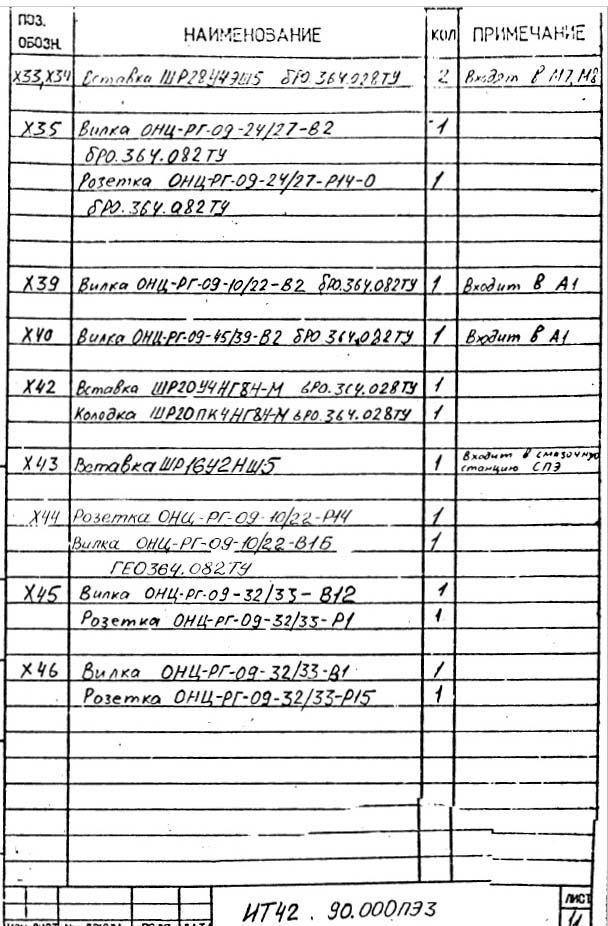 ПОЗ. ОБОЗН. НАИМЕНОВАНИЕ КОЛ ПРИМЕЧАНИЕ
Х33,Х34 Вставка ШР28У4ЭШ5 бР0.364.028ТУ 2 Входят в М7,М8
Х35 Вилка ОНЦ-РГ-09-24/27-В2 1
бР0.364.082ТУ
Розетка ОНЦ-РГ-09-24/27-Р14-0 1
бР0.364.082ТУ
Х39 Вилка ОНЦ-РГ-09-10/22-В2 бР0.364.082ТУ 1 Входит в А1
Х40 Вилка ОНЦ-РГ-09-45/39-В2 бР0 364.082ТУ 1 Входит в А1
Х42 Вставка ШР20У4НГ8Н-М бР0.364.028ТУ 1
Колодка ШР20ПК4НГ8Н-М бР0.364.028ТУ 1
Х43 Вставка ШР16У2НШ5 1 Входит в смазочную
станцию СПЭ
Х44 Розетка ОНЦ-РГ-09-10/22-Р14 1
Вилка ОНЦ-РГ-09-10/22-В1Б 1
ГЕО364.082ТУ
Х45 Вилка ОНЦ-РГ-09-32/33-В12 1
Розетка ОНЦ-РГ-09-32/33-Р1 1
Х46 Вилка ОНЦ-РГ-09-32/33-В1 1
Розетка ОНЦ-РГ-09-32/33-Р15 1
ИТ42.90.000ПЭ3
ЛИСТ